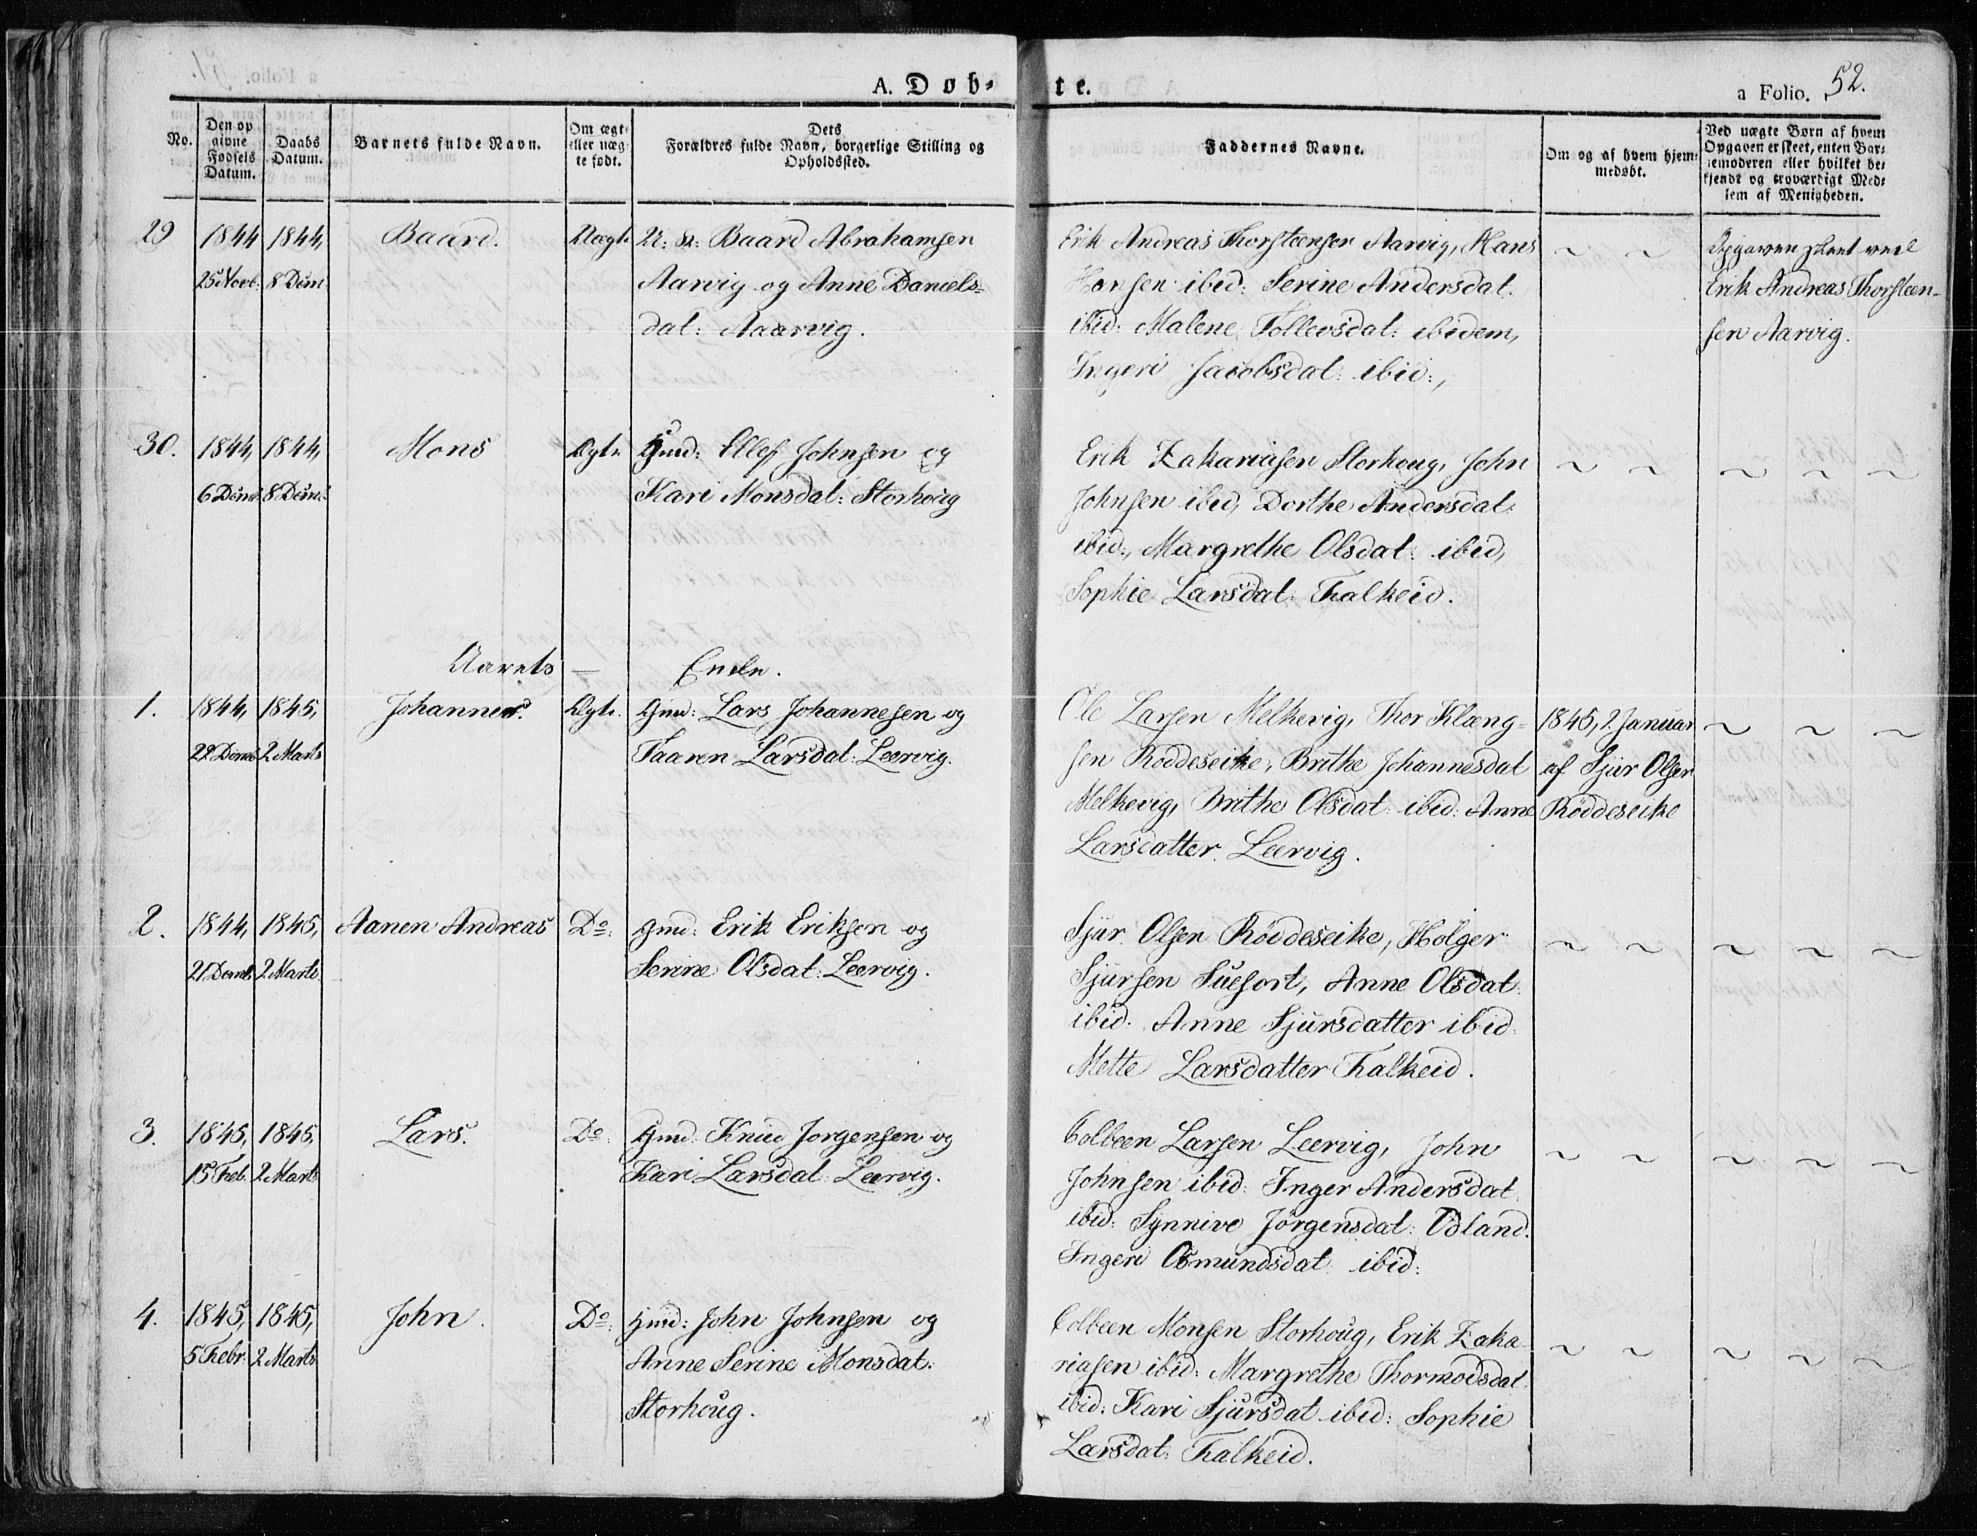 A. Døb-te.
a Folio. 52.
No.
Den op
givne
Fødsels
Datum.
Daabs
Datum.
Barnets fulde Navn.
Om ægte
eller uæg-
te født.
Dets
Forældres fulde Navn, borgerlige Stilling og
Opholdssted.
Faddernes Navne.
Om og af hvem hjem-
medøbt.
Ved uægte Børn af hvem
Opgaven er skeet, enten Bar-
nemoderen eller hvilket be-
kjendt og troværdigt Med-
lem af Menigheden.
29
1844
25 Novb.
1844,
8 Dem
Baard.
Uægt.
U: K: Baard Abrahamsen
Aarvig og Anne Daniels-
dat: Aaarvig.
Erik Andreas Thorsteensen Aarvig, Hans
Hansen ibid: Serine Andersdat.
ibid: Malene Tollevsdat: ibidem,
Ingeri Jacobsdat: ibid:,
~ ~
Opgaven skeet ved
Erik Andreas Thorsteen-
sen Aarvig.
30.
1844,
6 Demb.
1844,
8 Demb.
Mons
Ægte.
Gmd: Ellef Johnsen og
Kari Monsdat: Storhoug
Erik Zakariasen Storhoug, John
Johnsen ibid, Dorthe Andersdat:
ibid:, Margrethe Olsdat: ibid,
Sophie Larsdat: Falkeid.
~ ~ ~ ~ ~
Aarets — Ende.
1.
1844,
29 Demb.
1845,
2 Marts
Johannes.
Ægte.
Gmd: Lars Johannesen og
Taaren Larsdat: Leervig.
Ole Larsen Melkevig, Thor Klæng-
sen Røddeseike, Brithe Johannesdat
Melkevig, Brithe Olsdat: ibid: Anne
Larsdatter Leervig.
1845, 2 Januar
af Sjur Olsen
Røddeseike
~ ~ ~
2.
1844,
21 Demb.
1845,
2 Marts
Aanen Andreas
Do:
Gmd: Erik Eriksen og
Serine Olsdat: Leervig.
Sjur Olsen Røddeseike, Holger
Sjursen Suefort, Anne Olsdat:
ibid: Anne Sjursdatter ibid:
Mette Larsdatter Falkeid.
~ ~ ~ ~ ~
3.
1845,
15 Feb.
1845.
2 Marts
Lars.
Do:
Gmd: Knud Jorgensen og
Kari Larsdat: Leervig.
Colbeen Larsen Leervig, John
Johnsen ibid: Inger Andersdat.
ibid: Synnive Jørgensdat: Udland.
Ingeri Osmundsdat: ibid:
~ ~ ~ ~ ~
4.
1845,
5 Febr.
1845,
2 Marts.
John.
Do:
Gmd: John Johnsen og
Anne Serine Monsdat:
Storhoug.
Colbeen Monsen Storhoug, Erik Zaka-
riasen ibid: Margrethe Thormodsdat.
ibid: Kari Sjursdat ibid: Sophie
Larsdat: Falkeid.
~ ~ ~ ~ ~